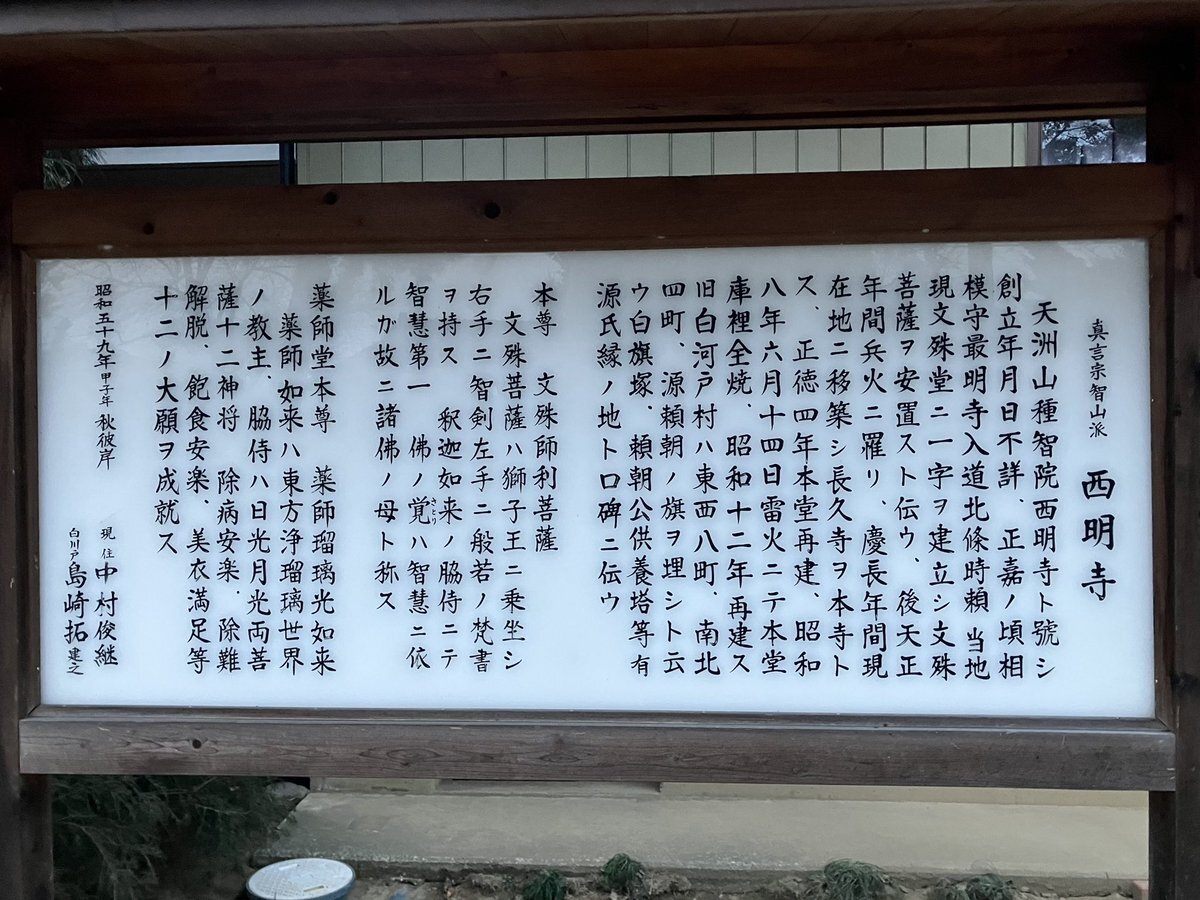 真言宗智山派 西明寺
天洲山種智院西明寺ト號シ
創立年月日不詳、正嘉ノ頃相
模守最明寺入道北條時頼当地
現文殊堂ニ一字ヲ建立シ文殊
菩薩ヲ安置スト伝ウ、後天正
年間兵火ニ羅リ、慶長年間現
在地ニ移築シ長久寺ヲ本寺ト
ス、正徳四年本堂再建、昭和
八年六月十四日雷火ニテ本堂
庫裡全焼、昭和十二年再建ス
旧白河戸村ハ東西八町、南北
四町、源頼朝ノ旗ヲ埋シト云
ウ白旗塚、頼朝公供養塔等有
源氏縁ノ地ト口碑ニ伝ウ
本尊 文殊師利菩薩
文殊菩薩ハ獅子王ニ乗坐シ
右手ニ智剣左手ニ般若ノ梵書
ヲ持ス 釈迦如来ノ脇侍ニテ
智慧第一 佛ノ覚ハ智慧ニ依
さとり
ルガ故ニ諸佛ノ母ト称ス
薬師堂本尊 薬師瑠璃光如来
薬師如来ハ東方浄瑠璃世界
ノ教主、脇侍ハ日光月光両菩
薩十二神将 除病安楽、除難
解脱、飽食安楽、美衣満足等
十二ノ大願ヲ成就ス
昭和五十九年甲子年秋彼岸
現住 中村俊継
白川戸 島崎拓 建之